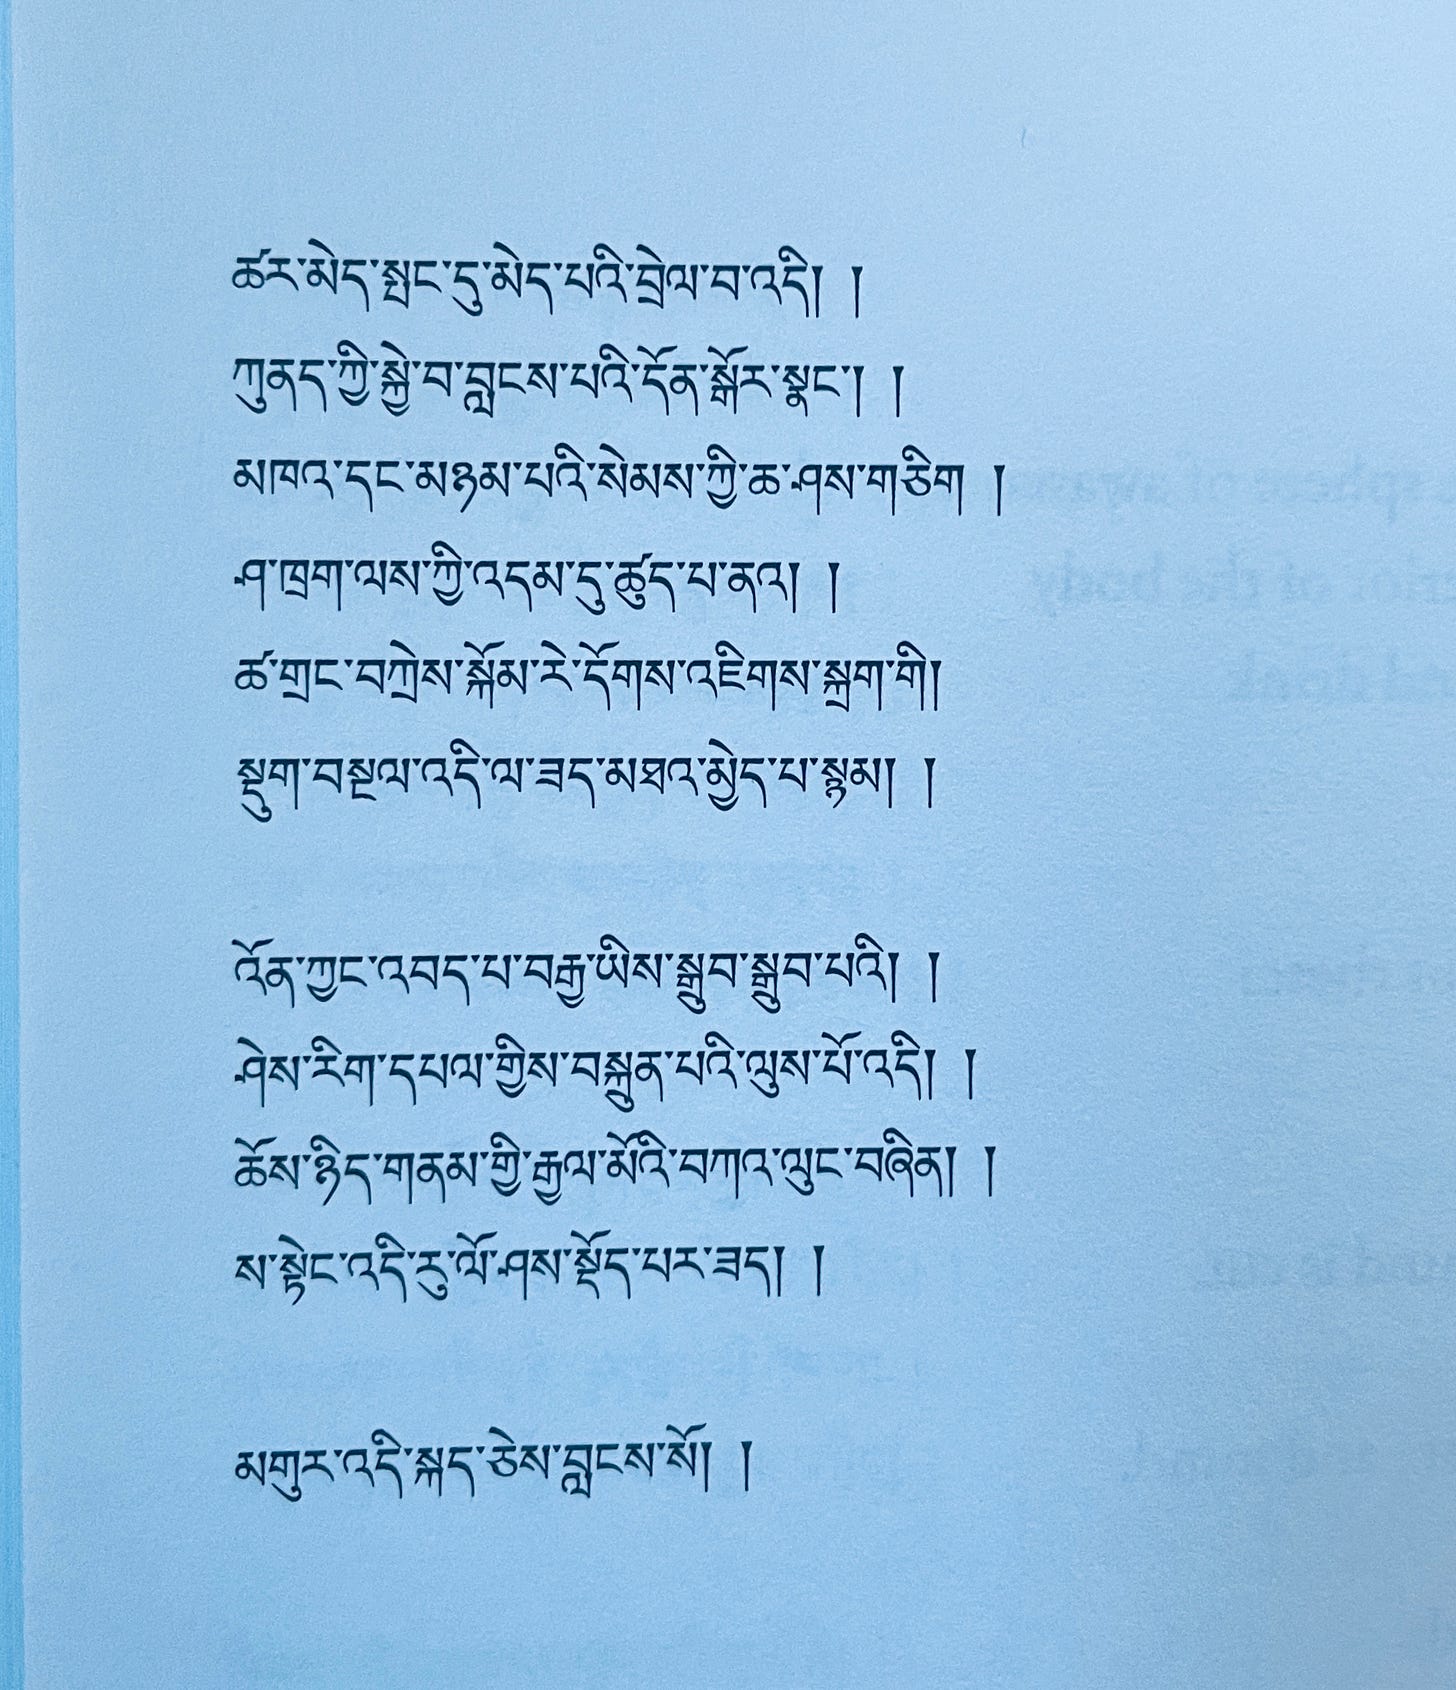 ཚར་མེད་སྤང་དུ་མེད་པའི་བྲེལ་བ་འདི། །
ཀུནད་ཀྱི་སྐྱེ་བ་བླངས་པའི་དོན་སྒོར་སྣང་། །
མཁའ་དང་མཉམ་པའི་སེམས་ཀྱི་ཆ་ཤས་གཅིག །
ཤ་ཁྲག་ལས་ཀྱི་འདམ་དུ་ཚུད་པ་ནའ། །
ཚ་གྲང་བཀྲེས་སྐོམ་རེ་དོགས་འཇིགས་སྐྲག་གི།
སྡུག་བསྔལ་འདི་ལ་ཟད་མཐའ་མྱེད་པ་སྙམ། །
འོན་ཀྱང་འབད་པ་བརྒྱ་ཡིས་སྒྲུབ་སྒྲུབ་པའི། །
ཤེས་རིག་དཔལ་གྱིས་བསྐྲུན་པའི་ལུས་པོ་འདི། །
ཆོས་ཉིད་གནམ་གྱི་རྒྱལ་མོའི་བཀའ་ལུང་བཞིན། །
ས་སྟེང་འདི་རུ་ལོ་ཤས་སྡོད་པར་ཟད། །
མགུར་འདི་སྐད་ཅེས་བླངས་སོ། །